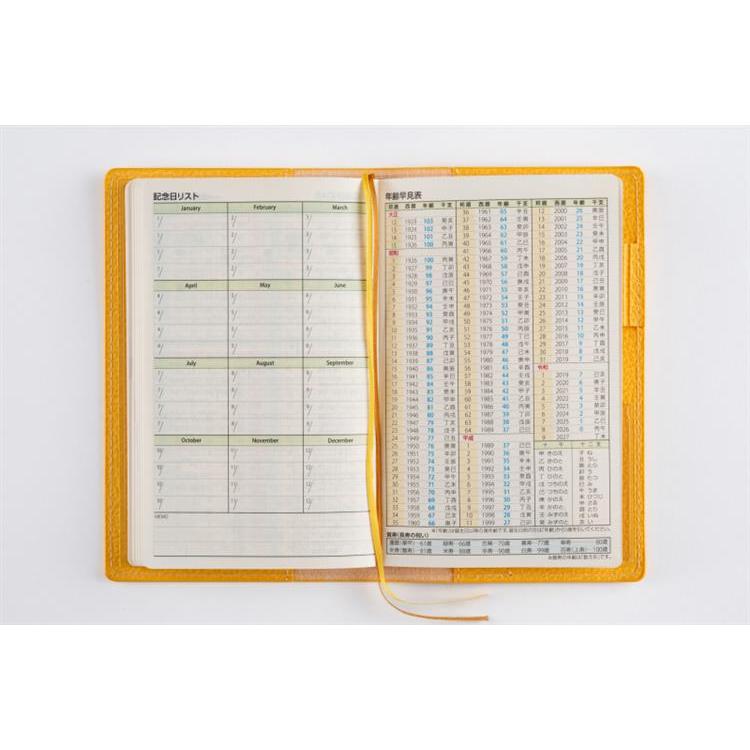 記念日リスト
January February March
1/ 2/ 3/
1/ 2/ 3/
1/ 2/ 3/
1/ 2/ 3/
April May June
4/ 5/ 6/
4/ 5/ 6/
4/ 5/ 6/
4/ 5/ 6/
July August September
7/ 8/ 9/
7/ 8/ 9/
7/ 8/ 9/
7/ 8/ 9/
October November December
10/ 11/ 12/
10/ 11/ 12/
10/ 11/ 12/
10/ 11/ 12/
MEMO
年齢早見表
年齢 干支
大正
12 1923 103 癸亥
13 1924 102 甲子
14 1925 101 乙丑
15 1926 100 丙寅
昭和
1 1926 100 丙寅
2 1927 99 丁卯
3 1928 98 戊辰
4 1929 97 己巳
5 1930 96 庚午
6 1931 95 辛未
7 1932 94 壬申
8 1933 93 癸酉
9 1934 92 甲戌
10 1935 91 乙亥
11 1936 90 丙子
12 1937 89 丁丑
13 1938 88 戊寅
14 1939 87 己卯
15 1940 86 庚辰
16 1941 85 辛巳
17 1942 84 壬午
18 1943 83 癸未
19 1944 82 甲申
20 1945 81 乙酉
21 1946 80 丙戌
22 1947 79 丁亥
23 1948 78 戊子
24 1949 77 己丑
25 1950 76 庚寅
26 1951 75 辛卯
27 1952 74 壬辰
28 1953 73 癸巳
29 1954 72 甲午
30 1955 71 乙未
31 1956 70 丙申
32 1957 69 丁酉
33 1958 68 戊戌
34 1959 67 己亥
35 1960 66 庚子
西暦 年齢 干支
36 1961 65 辛丑
37 1962 64 壬寅
38 1963 63 癸卯
39 1964 62 甲辰
40 1965 61 乙巳
41 1966 60 丙午
42 1967 59 丁未
43 1968 58 戊申
44 1969 57 己酉
45 1970 56 庚戌
46 1971 55 辛亥
47 1972 54 壬子
48 1973 53 癸丑
49 1974 52 甲寅
50 1975 51 乙卯
51 1976 50 丙辰
52 1977 49 丁巳
53 1978 48 戊午
54 1979 47 己未
55 1980 46 庚申
56 1981 45 辛酉
57 1982 44 壬戌
58 1983 43 癸亥
59 1984 42 甲子
60 1985 41 乙丑
61 1986 40 丙寅
62 1987 39 丁卯
63 1988 38 戊辰
64 1989 37 己巳
平成
1 1989 37 己巳
2 1990 36 庚午
3 1991 35 辛未
4 1992 34 壬申
5 1993 33 癸酉
6 1994 32 甲戌
7 1995 31 乙亥
8 1996 30 丙子
9 1997 29 丁丑
10 1998 28 戊寅
11 1999 27 己卯
西暦 年齢 干支
12 2000 26 庚辰
13 2001 25 辛巳
14 2002 24 壬午
15 2003 23 癸未
16 2004 22 甲申
17 2005 21 乙酉
18 2006 20 丙戌
19 2007 19 丁亥
20 2008 18 戊子
21 2009 17 己丑
22 2010 16 庚寅
23 2011 15 辛卯
24 2012 14 壬辰
25 2013 13 癸巳
26 2014 12 甲午
27 2015 11 乙未
28 2016 10 丙申
29 2017 9 丁酉
30 2018 8 戊戌
31 2019 7 己亥
令和
1 2019 7 己亥
2 2020 6 庚子
3 2021 5 辛丑
4 2022 4 壬寅
5 2023 3 癸卯
6 2024 2 甲辰
7 2025 1 乙巳
8 2026 0 丙午
9 2027 丁未
十干 十二支
甲 きのえ 子 ね
乙 きのと 丑 うし
丙 ひのえ 寅 とら
丁 ひのと 卯 う
戊 つちのえ 辰 たつ
己 つちのと 巳 み
庚 かのえ 午 うま
辛 かのと 未 ひつじ
壬 みずのえ 申 さる
癸 みずのと 酉 とり
戌 いぬ
亥 い
賀寿(長寿の祝い)
還暦(華甲)—61歳 緑寿—66歳 古稀—70歳 喜寿—77歳 傘寿 80歳
半寿(盤寿)—81歳 米寿—88歳 卒寿—90歳 白寿—99歳 百寿(上寿)—100歳